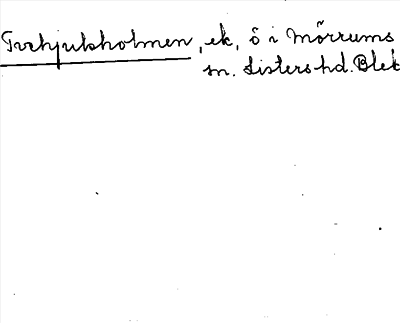 Tvehjulsholmen, ek, ö i Mörrums
sn. Listers hd. Blek